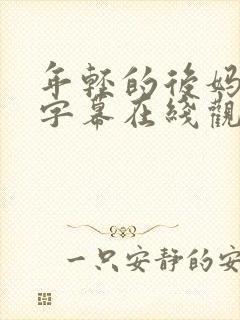 年轻的后妈
字幕在线观
一只安静的安